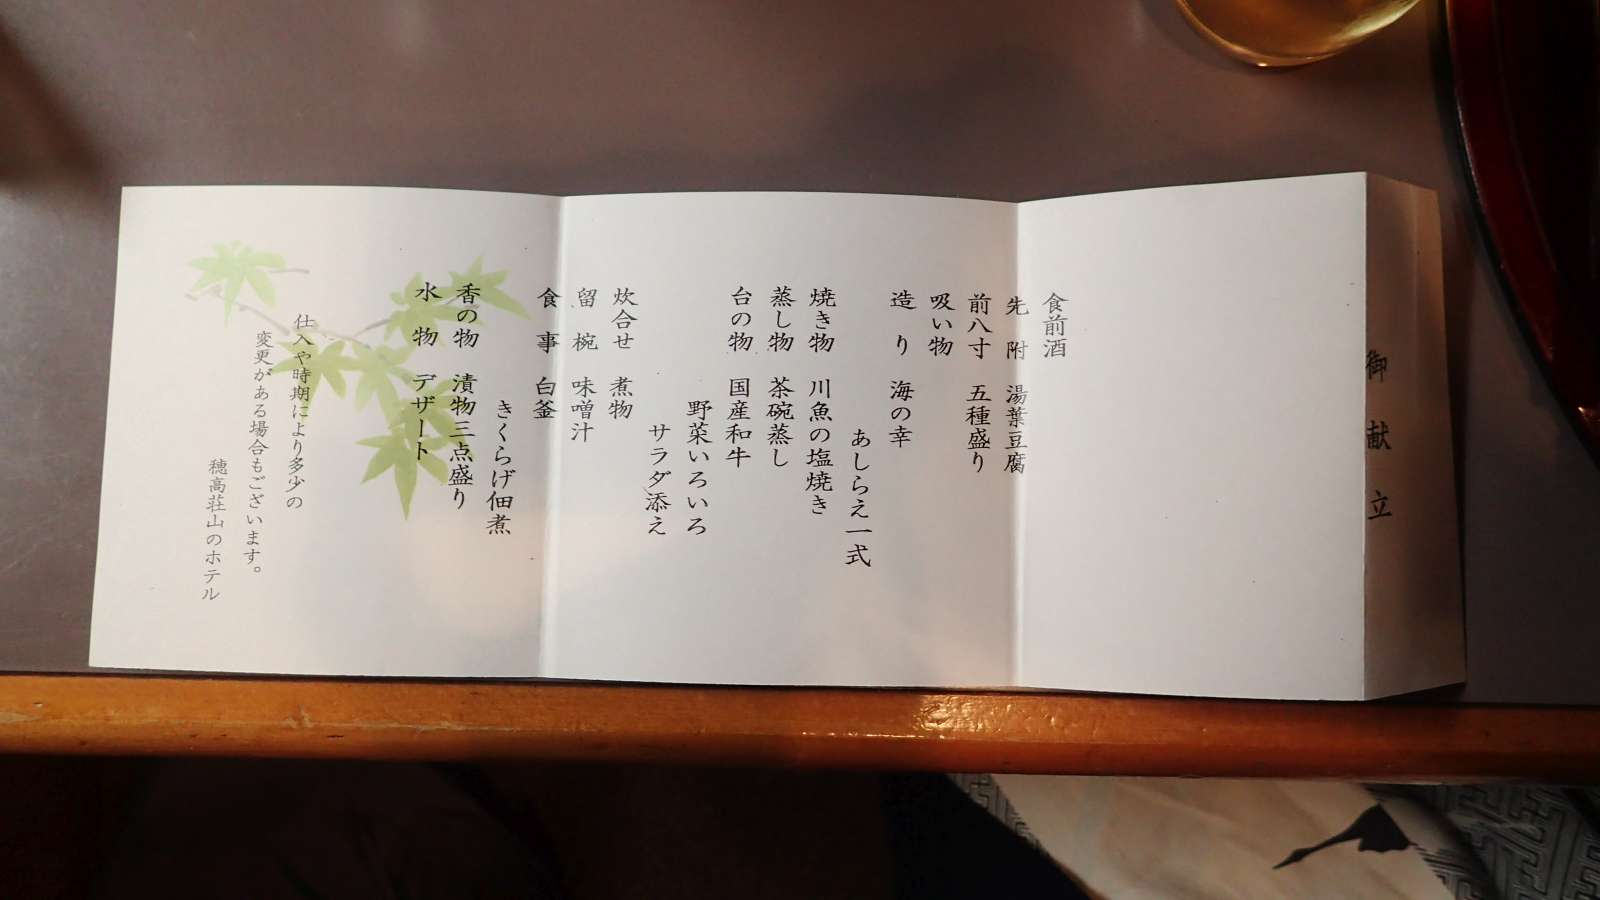 御献立
食前酒
先附 湯葉豆腐
前八寸 五種盛り
吸い物
造り 海の幸
あしらえ一式
焼き物 川魚の塩焼き
蒸し物 茶碗蒸し
台の物 国産和牛
野菜いろいろ
サラダ添え
炊合せ 煮物
留椀 味噌汁
食事 白釜
きくらげ佃煮
香の物 漬物三点盛り
水物 デザート
仕入や時期により多少の
変更がある場合もございます。
穂高荘山のホテル